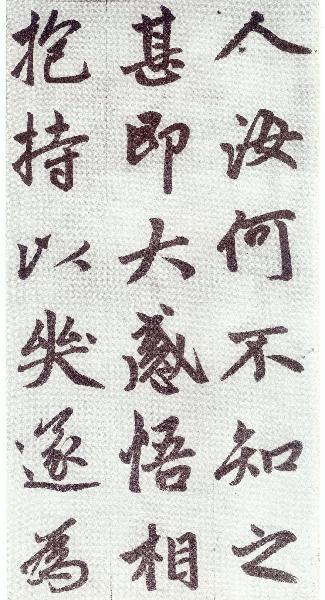 人汝何不知之
甚即大感悟相
抱持以哭遂为